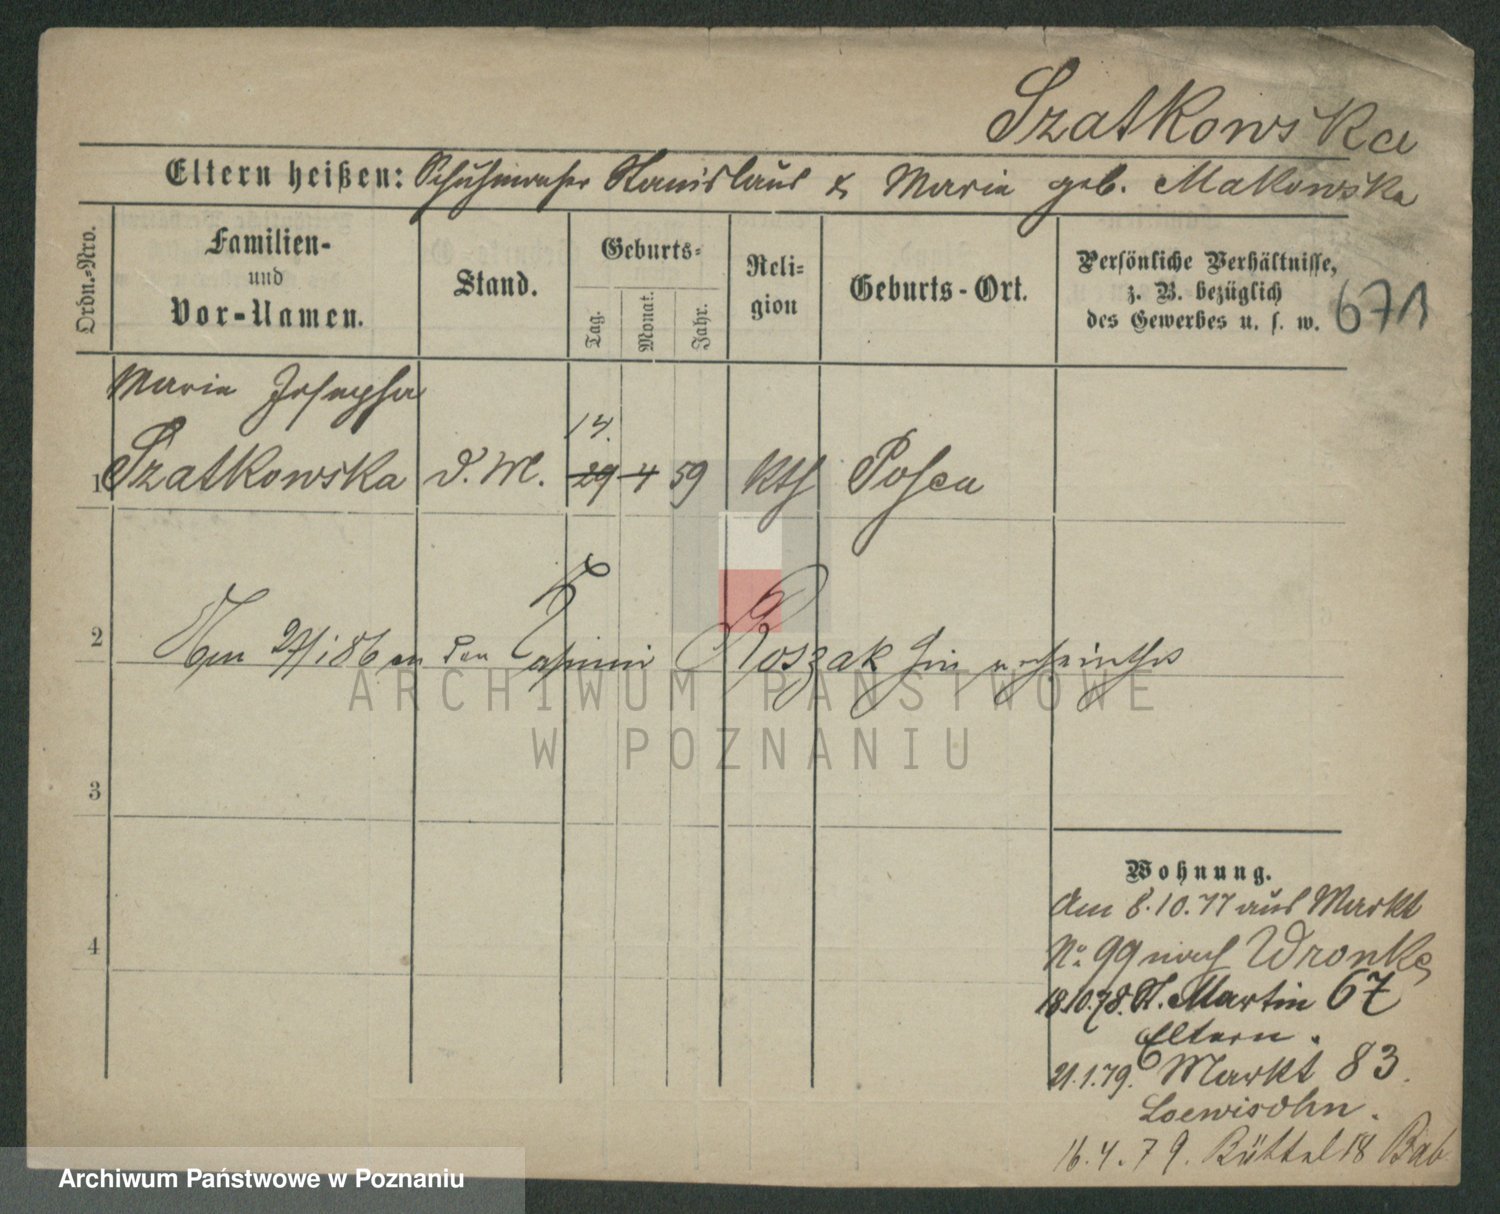 Szatkowska
Eltern heißen: Schuhmacher Stanislaus & Marie geb. Makowska
Ordn.-Nro.
Familien-
und
Vor-Namen.
Stand.
Geburts-
Tag.
Monat.
Jahr.
Reli-
gion
Geburts-Ort.
Persönliche Verhältnisse,
z. B. bezüglich
des Gewerbes u. s. w.
671
Marie Josepha
14.
1 Szatkowska d. M. 29 4 59 kth Posen
2 27/1 86 den Roszak
3
4
Wohnung.
Am 8.10.77 aus Markt
No 99 nach Wronke
18.10.78. St. Martin 67
Eltern.
21.1.79. Markt 83.
Loewisohn.
16.4.79. Büttel 18 Bab
ARCHIWUM PAŃSTWOWE
W POZNANIU
Archiwum Państwowe w Poznaniu